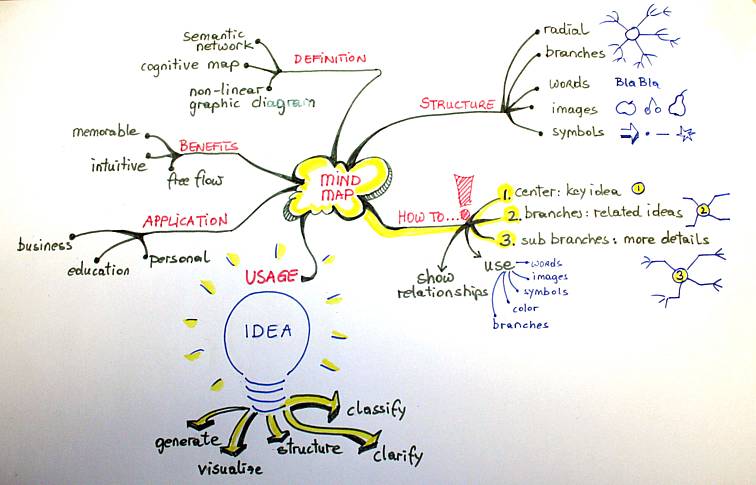 MIND
MAP
DEFINITION
semantic
network
cognitive map
non-linear
graphic diagram
BENEFITS
memorable
intuitive
free flow
APPLICATION
business
education
personal
USAGE
IDEA
generate
visualize
structure
clarify
classify
STRUCTURE
radial
branches
words
Bla Bla
images
symbols
HOW TO...
1. center: key idea 1
2. branches: related ideas
2
3. sub branches: more details
3
show
relationships
use
words
images
symbols
color
branches